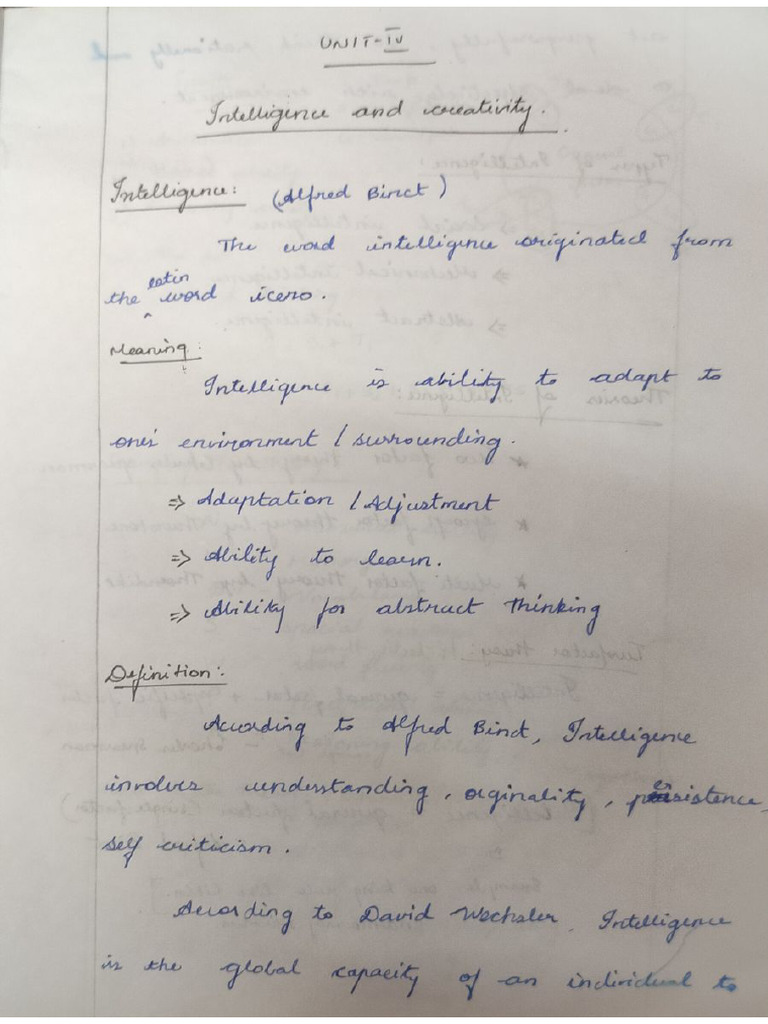 UNIT-IV
Intelligence and creativity.
Intelligence: (Alfred Binet)
The word intelligence originated from
the latin word icero.
Meaning:
Intelligence is ability to adapt to
one's environment / surrounding.
⇒ Adaptation / Adjustment
⇒ Ability to learn.
⇒ Ability for abstract thinking
Definition:
Acording to Alfred Binet, Intelligence
involves understanding, orginality, persistence,
self criticism.
Acording to David Wechsler, Intelligence
is the global capacity of an individual to